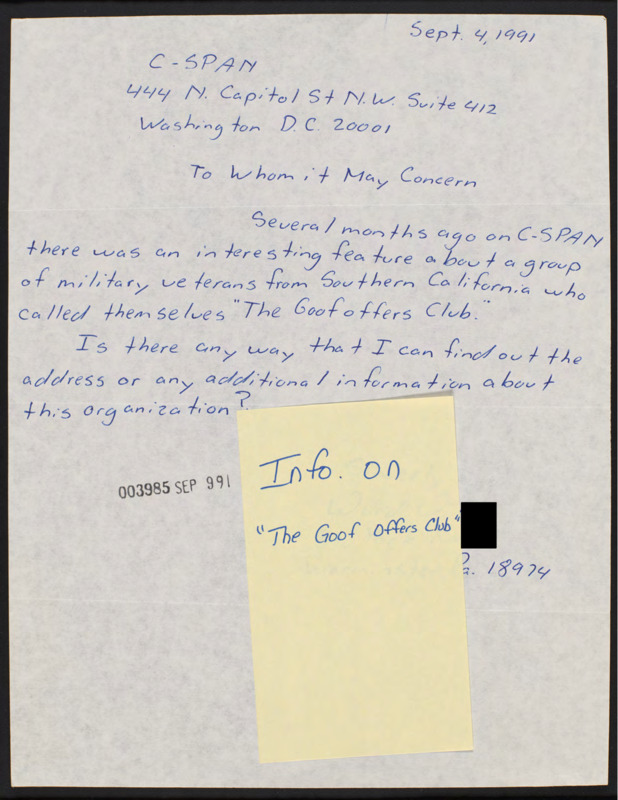 Sept. 4, 1991
C-SPAN
444 N. Capitol St N.W. Suite 412
Washington D.C. 20001
To Whom it May Concern
Several months ago on C-SPAN
there was an interesting feature about a group
of military veterans from Southern California who
called themselves "The Goofoffers Club."
Is there any way that I can find out the
address or any additional information about
this organization?
003985 SEP 991
Info. on
"The Goof Offers Club"
a. 18974